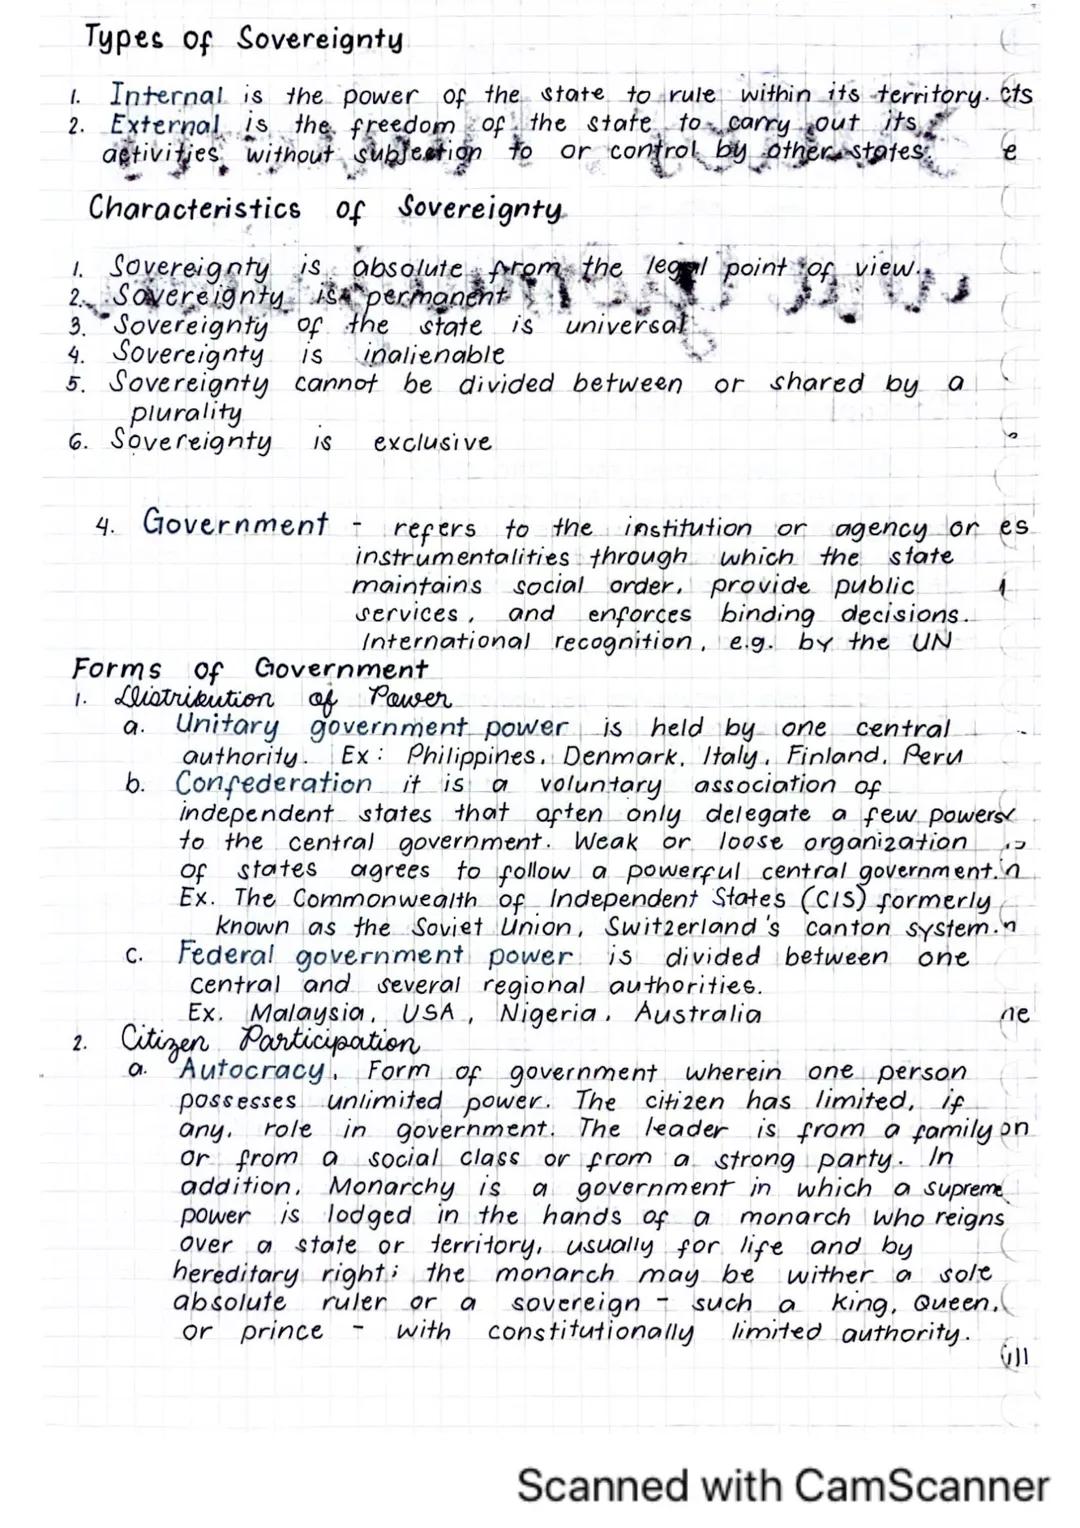 Types of Sovereignty
1. Internal is the power of the state to rule within its territory. cts
2. External is the freedom of the state to carry out its
activities without subjection to or control by other states. e
Characteristics of Sovereignty
1. Sovereignty is absolute from the legal point of view.
2. Sovereignty is permanent
3. Sovereignty of the state is universal
4. Sovereignty is inalienable
5. Sovereignty cannot be divided between or shared by a
plurality
6. Sovereignty is exclusive
4. Government - refers to the institution or agency or es
instrumentalities through which the state
maintains social order, provide public
services, and enforces binding decisions.
International recognition, e.g. by the UN
Forms of Government
1. Distribution of Power
a. Unitary government power is held by one central
authority. Ex: Philippines, Denmark, Italy, Finland, Peru
b. Confederation it is a voluntary association of
independent states that often only delegate a few powers
to the central government. Weak or loose organization
of states agrees to follow a powerful central government. n
Ex. The Commonwealth of Independent States (CIS) formerly
known as the Soviet Union, Switzerland's canton system. n
c. Federal government power is divided between one
central and several regional authorities.
Ex. Malaysia, USA, Nigeria, Australia ne
2. Citizen Participation
a. Autocracy. Form of government wherein one person
possesses unlimited power. The citizen has limited, if
any, role in government. The leader is from a family on
or from a social class or from a strong party. In
addition, Monarchy is a government in which a supreme
power is lodged in the hands of a monarch who reigns
over a state or territory, usually for life and by
hereditary right; the monarch may be wither a sole
absolute ruler or a sovereign - such a King, Queen,
or prince - with constitutionally limited authority.
Scanned with CamScanner